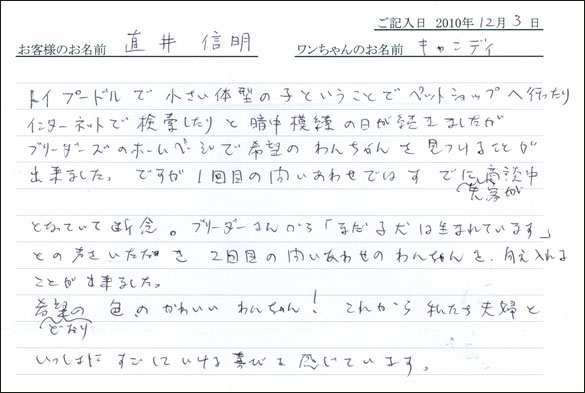 ご記入日 2010年12月3日
お客様のお名前 直井 信明 ワンちゃんのお名前 キャンディ
トイプードルで小さい体型の子ということでペットショップへ行ったり
インターネットで検索したりと暗中模索の日が続きましたが
ブリーダーズのホームページで希望のわんちゃんを見つけることが
出来ました。ですが1回目の問いあわせではすでに商談中
先客が
となっていて断念。ブリーダーさんから「まだ子犬は生まれています」
との声をいただき2回目の問いあわせのわんちゃんを、向え入れる
ことが出来ました。
希望の色のかわいいわんちゃん! これから私たち夫婦と
どおり
いっしょにすごしていける喜びを感じています。